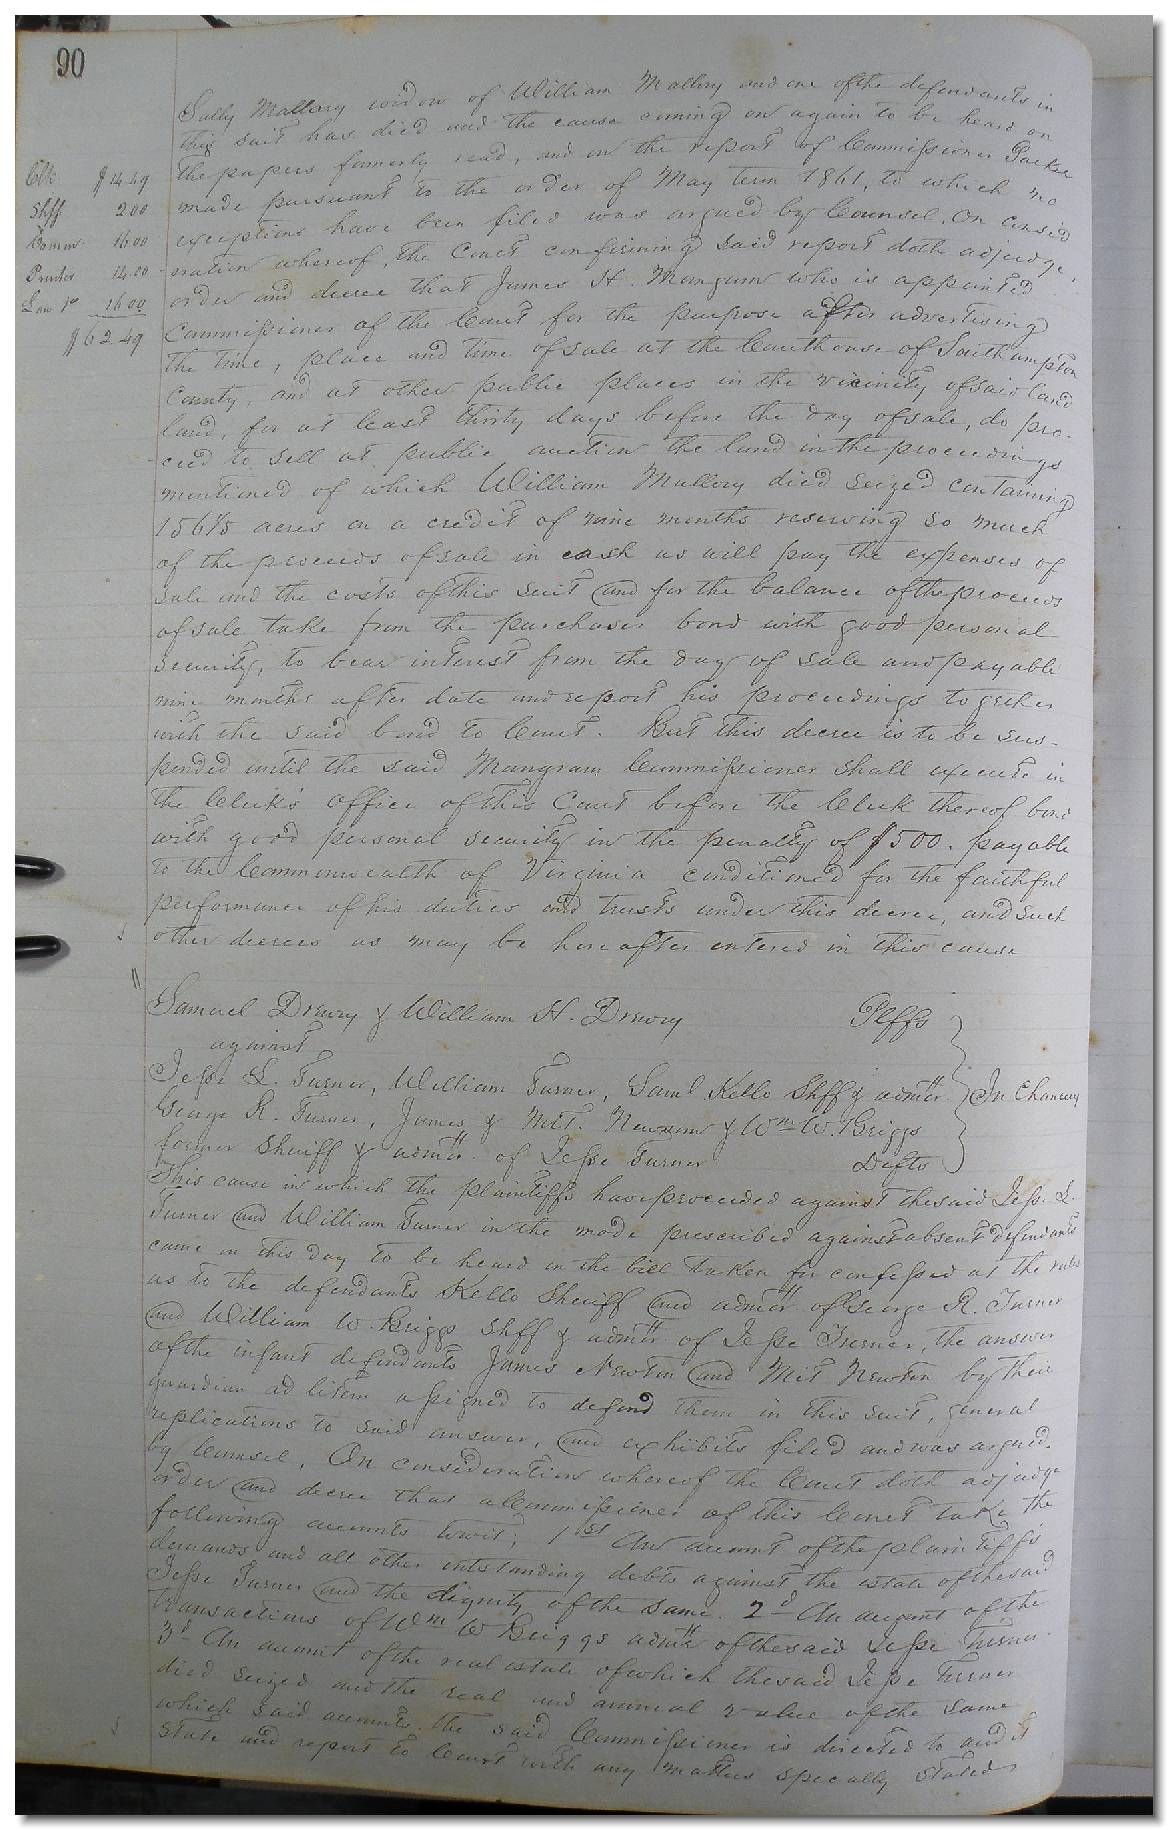 90
Sally Mallory widow of William Mallory and one of the defendants in
this suit has died and the cause coming on again to be heard on
the papers formerly read, and on the report of Commissioner Parker
made pursuant to the order of May term 1861, to which no
exceptions have been filed was argued by Counsel. On consid
eration whereof, the Court confirming said report doth adjudge,
order and decree that James H. Mangum who is appointed
Commissioner of the Court for the purpose after advertising
the time, place and time of sale at the Courthouse of Southampton
County, and at other public places in the vicinity of said land
land, for at least thirty days before the day of sale, do pro-
ceed to sell at public auction the land in the proceedings
mentioned of which William Mallory died seized containing
156⅞ acres on a credit of nine months reserving so much
of the proceeds of sale in cash as will pay the expenses of
sale and the costs of this suit and for the balance of the proceeds
of sale take from the purchaser bond with good personal
security, to bear interest from the day of sale and payable
nine months after date and report his proceedings together
with the said bond to Court. But this decree is to be sus-
pended until the said Mangram Commissioner shall execute in
the Clerk's office of this Court before the Clerk thereof bond
with good personal security in the penalty of $500. payable
to the Commonwealth of Virginia conditioned for the faithful
performance of his duties and trusts under this decree, and such
other decrees as may be hereafter entered in this cause
Clk $14.49
Shff 2.00
Comm. 16.00
14.00
Law 16.00
$62.49
Samuel Drewry & William H. Drewry Plffs
against
Jesse L. Turner, William Turner, Saml Kello Shff & admr In Chancery
George R. Turner, James & Mit. Newsom & Wm W. Briggs
former Sheriff & admr of Jesse Turner Defts
This cause in which the plaintiffs have proceeded against the said Jesse L.
Turner and William Turner in the mode prescribed against absent defendants
came on this day to be heard on the bill taken for confessed at the rules
as to the defendants Kello Sheriff and admr of George R. Turner
and William W. Briggs Shff & admr of Jesse Turner, the answer
of the infant defendants James Newton and Mit Newton by their
guardian ad litem assigned to defend them in this suit, general
replications to said answer, and exhibits filed and was argued
by Counsel, On consideration whereof the Court doth adjudge
order and decree that a Commissioner of this Court take the
following accounts towit; 1st An account of the plaintiffs
demands and all other outstanding debts against the estate of the said
Jesse Turner and the dignity of the same. 2d An account of the
transactions of Wm W Briggs admr of the said Jesse Turner
3d An account of the real estate of which the said Jesse Turner
died seized and the real and annual value of the same
which said accounts the said Commissioner is directed to audit
state and report to Court with any matters specially stated